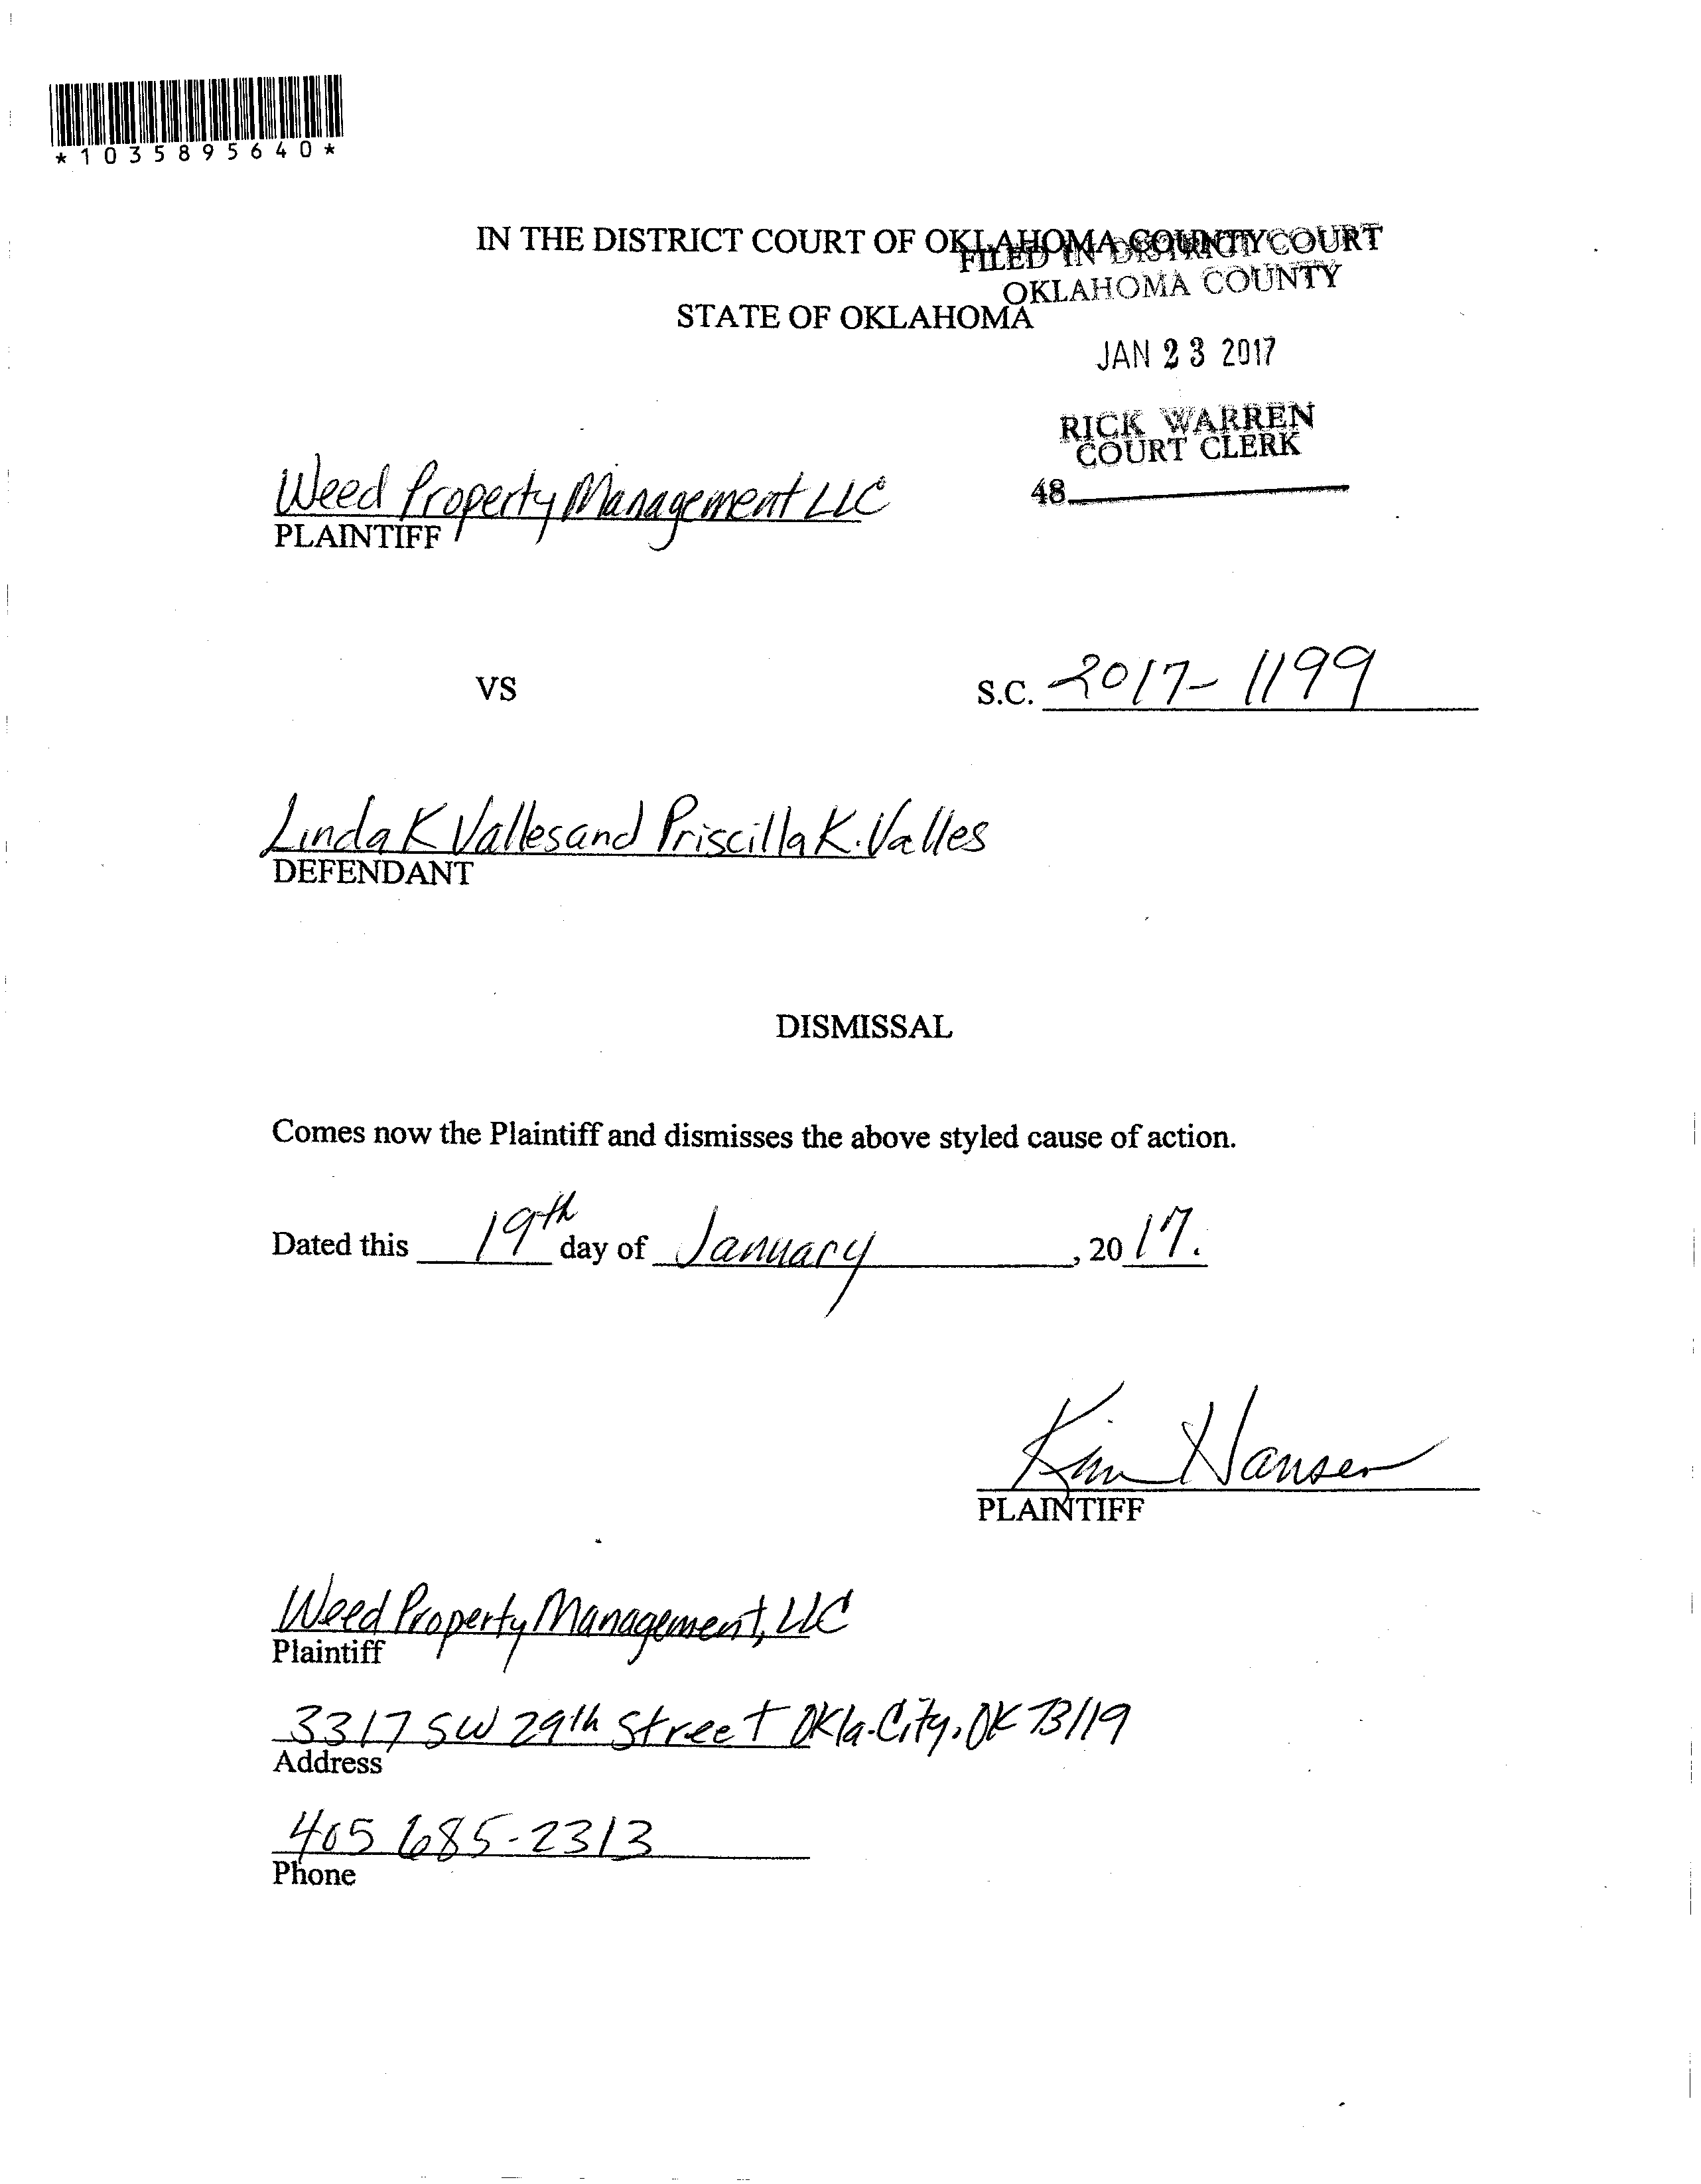 *1035895640*
IN THE DISTRICT COURT OF OKLAHOMA COUNTY
FILED IN DISTRICT COURT
OKLAHOMA COUNTY
STATE OF OKLAHOMA
JAN 23 2017
RICK WARREN
COURT CLERK
48
Weed Property Management LLC
PLAINTIFF
VS
S.C. 2017-1199
Linda K Valles and Priscilla K. Valles
DEFENDANT
DISMISSAL
Comes now the Plaintiff and dismisses the above styled cause of action.
Dated this 19th day of January, 2017.
Kim Hansen
PLAINTIFF
Weed Property Management, LLC
Plaintiff
3317 SW 29th Street Okla. City, OK 73119
Address
405 685-2313
Phone